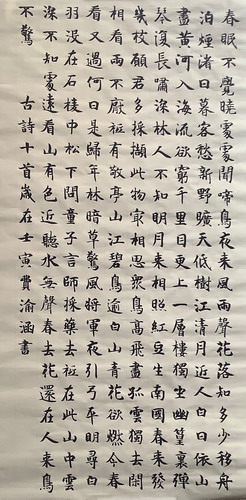 春眠不覺曉處處聞啼鳥夜來風雨聲花落知多少移舟
泊煙渚日暮客愁新野曠天低樹江清月近人白日依山
盡黃河入海流欲窮千里目更上一層樓獨坐幽篁裏彈
琴復長嘯深林人不知明月來相照紅豆生南國春來發
幾枝願君多採擷此物最相思衆鳥高飛盡孤雲獨去閒
相看兩不厭衹有敬亭山江碧鳥逾白山青花欲燃今春
看又過何日是歸年林暗草驚風將軍夜引弓平明尋白
羽沒在石棱中松下問童子言師採藥去衹在此山中雲
深不知處遠看山有色近聽水無聲春去花還在人來鳥
不驚 古詩十首歲在壬寅費渝涵書